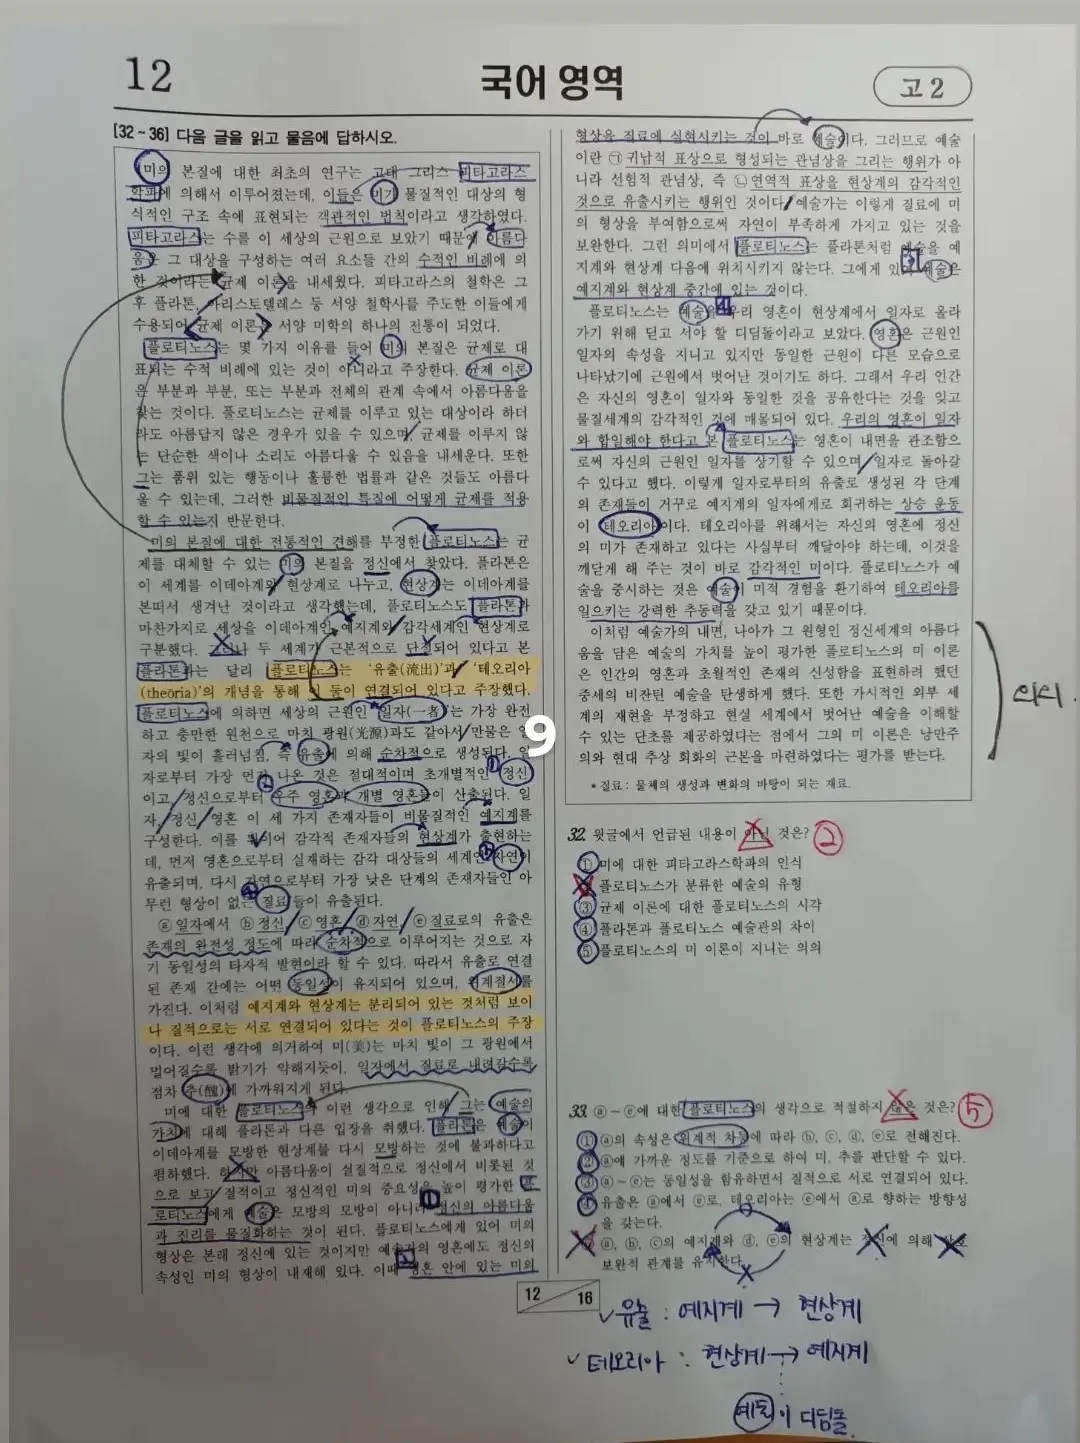 12
국어 영역
고 2
[32~36] 다음 글을 읽고 물음에 답하시오.
미의 본질에 대한 최초의 연구는 고대 그리스 피타고라스
학파에 의해서 이루어졌는데, 이들은 미가 물질적인 대상의 형
식적인 구조 속에 표현되는 객관적인 법칙이라고 생각하였다.
피타고라스는 수를 이 세상의 근원으로 보았기 때문에 아름다
움은 그 대상을 구성하는 여러 요소들 간의 수적인 비례에 의
한 것이라는 균제 이론을 내세웠다. 피타고라스의 철학은 그
후 플라톤, 아리스토텔레스 등 서양 철학사를 주도한 이들에게
수용되어 균제 이론은 서양 미학의 하나의 전통이 되었다.
플로티노스는 몇 가지 이유를 들어 미의 본질은 균제로 대
표되는 수적 비례에 있는 것이 아니라고 주장한다. 균제 이론
은 부분과 부분, 또는 부분과 전체의 관계 속에서 아름다움을
찾는 것이다. 플로티노스는 균제를 이루고 있는 대상이라 하더
라도 아름답지 않은 경우가 있을 수 있으며, 균제를 이루지 않
는 단순한 색이나 소리도 아름다울 수 있음을 내세운다. 또한
그는 품위 있는 행동이나 훌륭한 법률과 같은 것들도 아름다
울 수 있는데, 그러한 비물질적인 특질에 어떻게 균제를 적용
할 수 있는지 반문한다.
미의 본질에 대한 전통적인 견해를 부정한 플로티노스는 균
제를 대체할 수 있는 미의 본질을 정신에서 찾았다. 플라톤은
이 세계를 이데아계와 현상계로 나누고, 현상계는 이데아계를
본떠서 생겨난 것이라고 생각했는데, 플로티노스도 플라톤과
마찬가지로 세상을 이데아계인 예지계와 감각세계인 현상계로
구분했다. 그러나 두 세계가 근본적으로 단절되어 있다고 본
플라톤과는 달리 플로티노스는 ‘유출(流出)’과 ‘테오리아
(theōria)’의 개념을 통해 이 둘이 연결되어 있다고 주장했다.
플로티노스에 의하면 세상의 근원인 ‘일자(一者)’는 가장 완전
하고 충만한 원천으로 마치 광원(光源)과도 같아서 만물은 일
자의 빛이 흘러넘침, 즉 유출에 의해 순차적으로 생성된다. 일
자로부터 가장 먼저 나온 것은 절대적이며 초개별적인 정신
이고, 정신으로부터 우주 영혼과 개별 영혼들이 산출된다. 일
자, 정신, 영혼 이 세 가지 존재자들이 비물질적인 예지계를
구성한다. 이를 뒤이어 감각적 존재자들의 현상계가 출현하는
데, 먼저 영혼으로부터 실재하는 감각 대상들의 세계인 자연이
유출되며, 다시 자연으로부터 가장 낮은 단계의 존재자들인 아
무런 형상이 없는 질료*들이 유출된다.
ⓐ 일자에서 ⓑ 정신, ⓒ 영혼, ⓓ 자연, ⓔ 질료로의 유출은
존재의 완전성 정도에 따라 순차적으로 이루어지는 것으로 자
기 동일성의 타자적 발현이라 할 수 있다. 따라서 유출로 연결
된 존재 간에는 어떤 동일성이 유지되어 있으며, 위계질서를
가진다. 이처럼 예지계와 현상계는 분리되어 있는 것처럼 보이
나 질적으로는 서로 연결되어 있다는 것이 플로티노스의 주장
이다. 이런 생각에 의거하여 미(美)는 마치 빛이 그 광원에서
멀어질수록 밝기가 약해지듯이, 일자에서 질료로 내려갈수록
점차 추(醜)에 가까워지게 된다.
미에 대한 플로티노스의 이런 생각으로 인해 그는 예술의
가치에 대해 플라톤과 다른 입장을 취했다. 플라톤은 예술이
이데아계를 모방한 현상계를 다시 모방하는 것에 불과하다고
폄하했다. 하지만 아름다움이 실질적으로 정신에서 비롯된 것
으로 보고 질적이고 정신적인 미의 중요성을 높이 평가한 플
로티노스에게 예술은 모방의 모방이 아니라 정신의 아름다움
과 진리를 물질화하는 것이 된다. 플로티노스에게 있어 미의
형상은 본래 정신에 있는 것이지만 예술가의 영혼에도 정신의
속성인 미의 형상이 내재해 있다. 이때 영혼 안에 있는 미의
형상을 질료에 실현시키는 것이 바로 예술이다. 그러므로 예술
이란 ㉠ 귀납적 표상으로 형성되는 관념상을 그리는 행위가 아
니라 선험적 관념상, 즉 ㉡ 연역적 표상을 현상계의 감각적인
것으로 유출시키는 행위인 것이다. 예술가는 이렇게 질료에 미
의 형상을 부여함으로써 자연이 부족하게 가지고 있는 것을
보완한다. 그런 의미에서 플로티노스는 플라톤처럼 예술을 예
지계와 현상계 다음에 위치시키지 않는다. 그에게 있어 예술은
예지계와 현상계 중간에 있는 것이다.
플로티노스는 예술을 우리 영혼이 현상계에서 일자로 올라
가기 위해 딛고 서야 할 디딤돌이라고 보았다. 영혼은 근원인
일자의 속성을 지니고 있지만 동일한 근원이 다른 모습으로
나타났기에 근원에서 벗어난 것이기도 하다. 그래서 우리 인간
은 자신의 영혼이 일자와 동일한 것을 공유한다는 것을 잊고
물질세계의 감각적인 것에 매몰되어 있다. 우리의 영혼이 일자
와 합일해야 한다고 본 플로티노스는 영혼이 내면을 관조함으
로써 자신의 근원인 일자를 상기할 수 있으며, 일자로 돌아갈
수 있다고 했다. 이렇게 일자로부터의 유출로 생성된 각 단계
의 존재들이 거꾸로 예지계의 일자에게로 회귀하는 상승 운동
이 테오리아이다. 테오리아를 위해서는 자신의 영혼에 정신
의 미가 존재하고 있다는 사실부터 깨달아야 하는데, 이것을
깨닫게 해 주는 것이 바로 감각적인 미이다. 플로티노스가 예
술을 중시하는 것은 예술이 미적 경험을 환기하여 테오리아를
일으키는 강력한 추동력을 갖고 있기 때문이다.
이처럼 예술가의 내면, 나아가 그 원형인 정신세계의 아름다
움을 담은 예술의 가치를 높이 평가한 플로티노스의 미 이론
은 인간의 영혼과 초월적인 존재의 신성함을 표현하려 했던
중세의 비잔틴 예술을 탄생하게 했다. 또한 가시적인 외부 세
계의 재현을 부정하고 현실 세계에서 벗어난 예술을 이해할
수 있는 단초를 제공하였다는 점에서 그의 미 이론은 낭만주
의와 현대 추상 회화의 근본을 마련하였다는 평가를 받는다.
의의
* 질료: 물체의 생성과 변화의 바탕이 되는 재료.
9
32. 윗글에서 언급된 내용이 아닌 것은? ②
① 미에 대한 피타고라스학파의 인식
② 플로티노스가 분류한 예술의 유형
③ 균제 이론에 대한 플로티노스의 시각
④ 플라톤과 플로티노스 예술관의 차이
⑤ 플로티노스의 미 이론이 지니는 의의
33. ⓐ~ⓔ에 대한 플로티노스의 생각으로 적절하지 않은 것은? ⑤
① ⓐ의 속성은 위계적 차등에 따라 ⓑ, ⓒ, ⓓ, ⓔ로 전해진다.
② ⓐ에 가까운 정도를 기준으로 하여 미, 추를 판단할 수 있다.
③ ⓐ~ⓔ는 동일성을 함유하면서 질적으로 서로 연결되어 있다.
④ 유출은 ⓐ에서 ⓔ로, 테오리아는 ⓔ에서 ⓐ로 향하는 방향성
을 갖는다.
⑤ ⓐ, ⓑ, ⓒ의 예지계와 ⓓ, ⓔ의 현상계는 정신에 의해 상호
보완적 관계를 유지한다.
12 16
✓ 유출 : 예지계 → 현상계
✓ 테오리아 : 현상계 → 예지계
예술이 디딤돌.